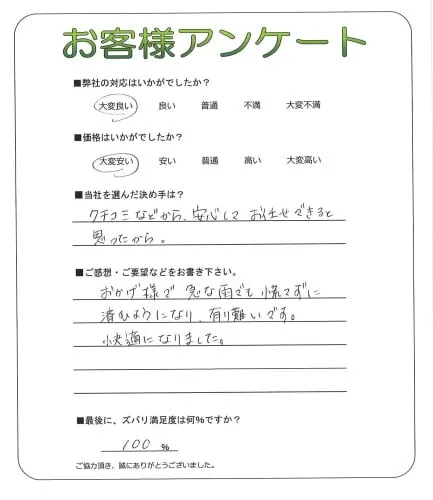 お客様アンケート
■弊社の対応はいかがでしたか?
大変良い 良い 普通 不満 大変不満
■価格はいかがでしたか?
大変安い 安い 普通 高い 大変高い
■当社を選んだ決め手は?
クチコミなどから、安心して お任せできると
思ったから。
■ご感想・ご要望などをお書き下さい。
おかげ様で 急な雨でも 慌てずに
済むようになり、有り難いです。
快適になりました。
■最後に、ズバリ満足度は何%ですか?
100 %
ご協力頂き、誠にありがとうございました。